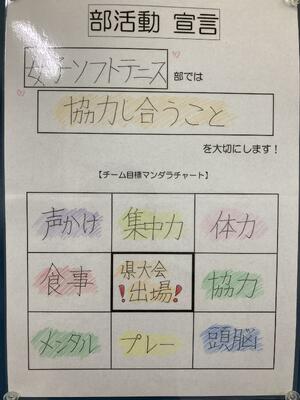 部活動 宣言
女子ソフトテニス部では
協力し合うこと
を大切にします!
【チーム目標マンダラチャート】
声かけ 集中力 体力
食事 県大会 協力
!出場!
メンタル プレー 頭脳